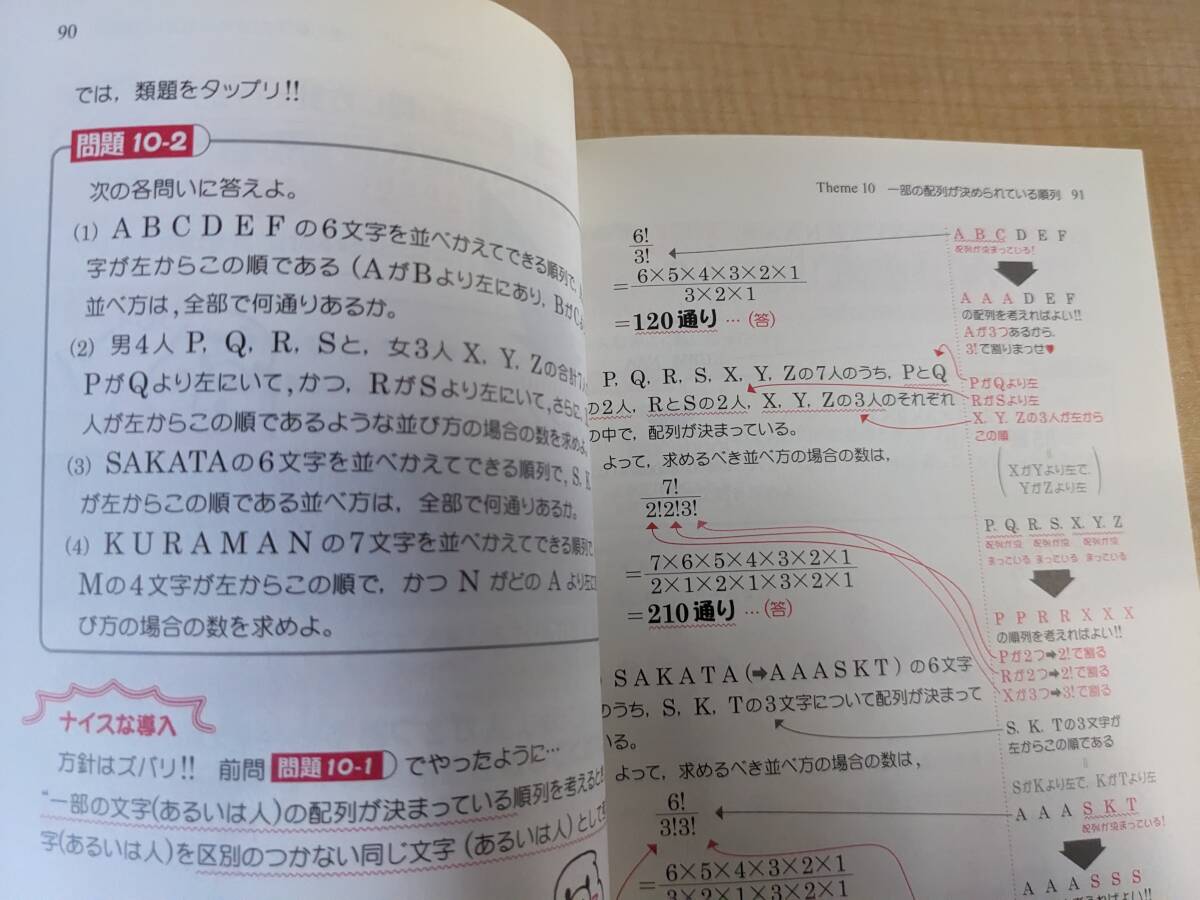 90
では，類題をタップリ!!
問題 10-2
次の各問いに答えよ。
(1) ＡＢＣＤＥＦの６文字を並べかえてできる順列で，
字が左からこの順である（ＡがＢより左にあり，ＢがＣ
並べ方は，全部で何通りあるか。
(2) 男４人 P，Q，R，Sと，女３人 X，Y，Zの合計7
PがQより左にいて，かつ，RがSより左にいて，さらに，
人が左からこの順であるような並び方の場合の数を求めよ。
(3) SAKATAの６文字を並べかえてできる順列で，S，K
が左からこの順である並べ方は，全部で何通りあるか。
(4) ＫＵＲＡＭＡＮの７文字を並べかえてできる順列で
Mの４文字が左からこの順で，かつ N がどの A より左に
び方の場合の数を求めよ。
ナイスな導入
方針はズバリ!! 前問 問題10-1 でやったように…
“一部の文字(あるいは人)の配列が決まっている順列を考えるとき
字(あるいは人)を区別のつかない同じ文字(あるいは人)として
Theme 10 一部の配列が決められている順列 91
6!
3!
＝6×5×4×3×2×1
3×2×1
＝120通り …(答)
P，Q，R，S，X，Y，Zの7人のうち，PとQ
の2人，RとSの2人，X，Y，Zの3人のそれぞれ
の中で，配列が決まっている。
よって，求めるべき並べ方の場合の数は，
7!
2!2!3!
＝7×6×5×4×3×2×1
2×1×2×1×3×2×1
＝210通り …(答)
ＳＡＫＡＴＡ(➡ＡＡＡＳＫＴ)の6文字
のうち，S，K，Tの3文字について配列が決まって
いる。
よって，求めるべき並べ方の場合の数は，
6!
3!3!
＝6×5×4×3×2×1
3×2×1×3×2×1
A B C D E F
配列が決まっている!
A A A D E F
の配列を考えればよい!!
Aが3つあるから，
3!で割りまっせ♥
PがQより左
RがSより左
X，Y，Zの3人が左から
この順
＝
XがYより左で，
YがZより左
P，Q，R，S，X，Y，Z
配列が決 配列が決 配列が決
まっている まっている まっている
P P R R X X X
の順列を考えればよい!!
Pが2つ➡2!で割る
Rが2つ➡2!で割る
Xが3つ➡3!で割る
S，K，Tの3文字が
左からこの順である
＝
SがKより左で，KがTより左
A A A S K T
配列が決まっている!
A A A S S S